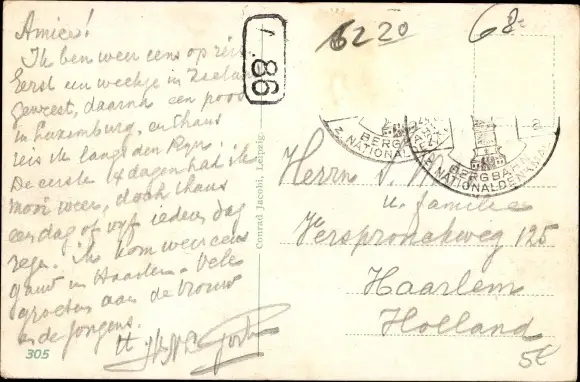 Amice!
Ik ben weer eens op reis
Eerst een weekje in Zeeland
geweest, daarna een poos
in Luxemburg, en thans
reis ik langs den Rijn.
De eerste 4 dagen had ik
mooi weer, doch thans
een dag of vijf iedere dag
regen. Ik kom weer eens
gauw in Haarlem. Vele
groeten aan de vrouw
en de jongens.
305
86
Conrad Jacobi, Leipzig.
6220
68-
BERGBAHN
NATIONALDENKMAL
BERGBAHN
NATIONALDENKMAL
Herrn
u. familie
Verspronckweg 125
Haarlem
Holland
5E